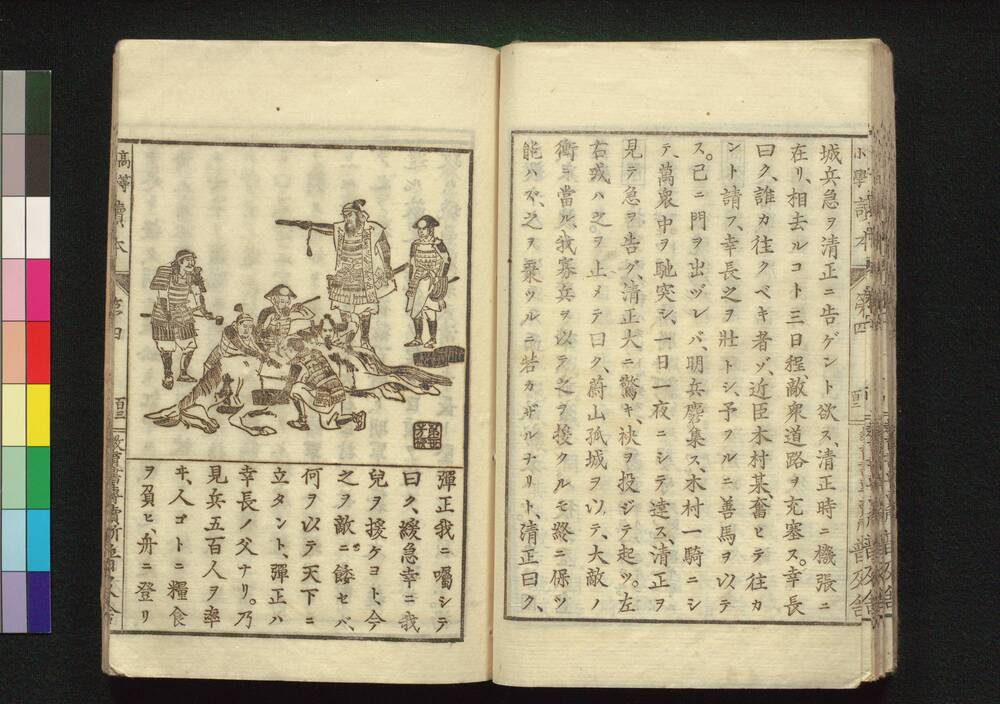 城兵急ヲ清正ニ告ゲント欲ス、清正時ニ機張ニ
在リ、相去ルコト三日程、敵衆道路ヲ充塞ス。幸長
曰ク、誰カ往クベキ者ゾ、近臣木村某、奮ヒテ往カ
ント請フ、幸長之ヲ壯トシ、予フルニ善馬ヲ以テ
ス。已ニ門ヲ出ヅレバ、明兵麕集ス、木村一騎ニシ
テ、萬衆中ヲ馳突シ、一日一夜ニシテ達ス、清正ヲ
見テ急ヲ告グ、清正大ニ驚キ、袂ヲ投ジテ起ツ。左
右或ハ之ヲ止メテ曰ク、蔚山孤城ヲ以テ、大敵ノ
衝ニ當ル、我寡兵ヲ以テ之ヲ援クルモ終ニ保ツ
能ハズ、之ヲ棄ツルニ若カザルナリト、清正曰ク、
小學讀本
第四
百二
普及舍
高等讀本
第四
百三
彈正我ニ囑シテ
曰ク、緩急幸ニ我
兒ヲ援ケヨト、今
之ヲ敵ニ餧セバ、
何ヲ以テ天下ニ
立タント、彈正ハ
幸長ノ父ナリ。乃
見兵五百人ヲ率
ヰ、人ゴトニ糧食
ヲ負ヒ、舟ニ登リ